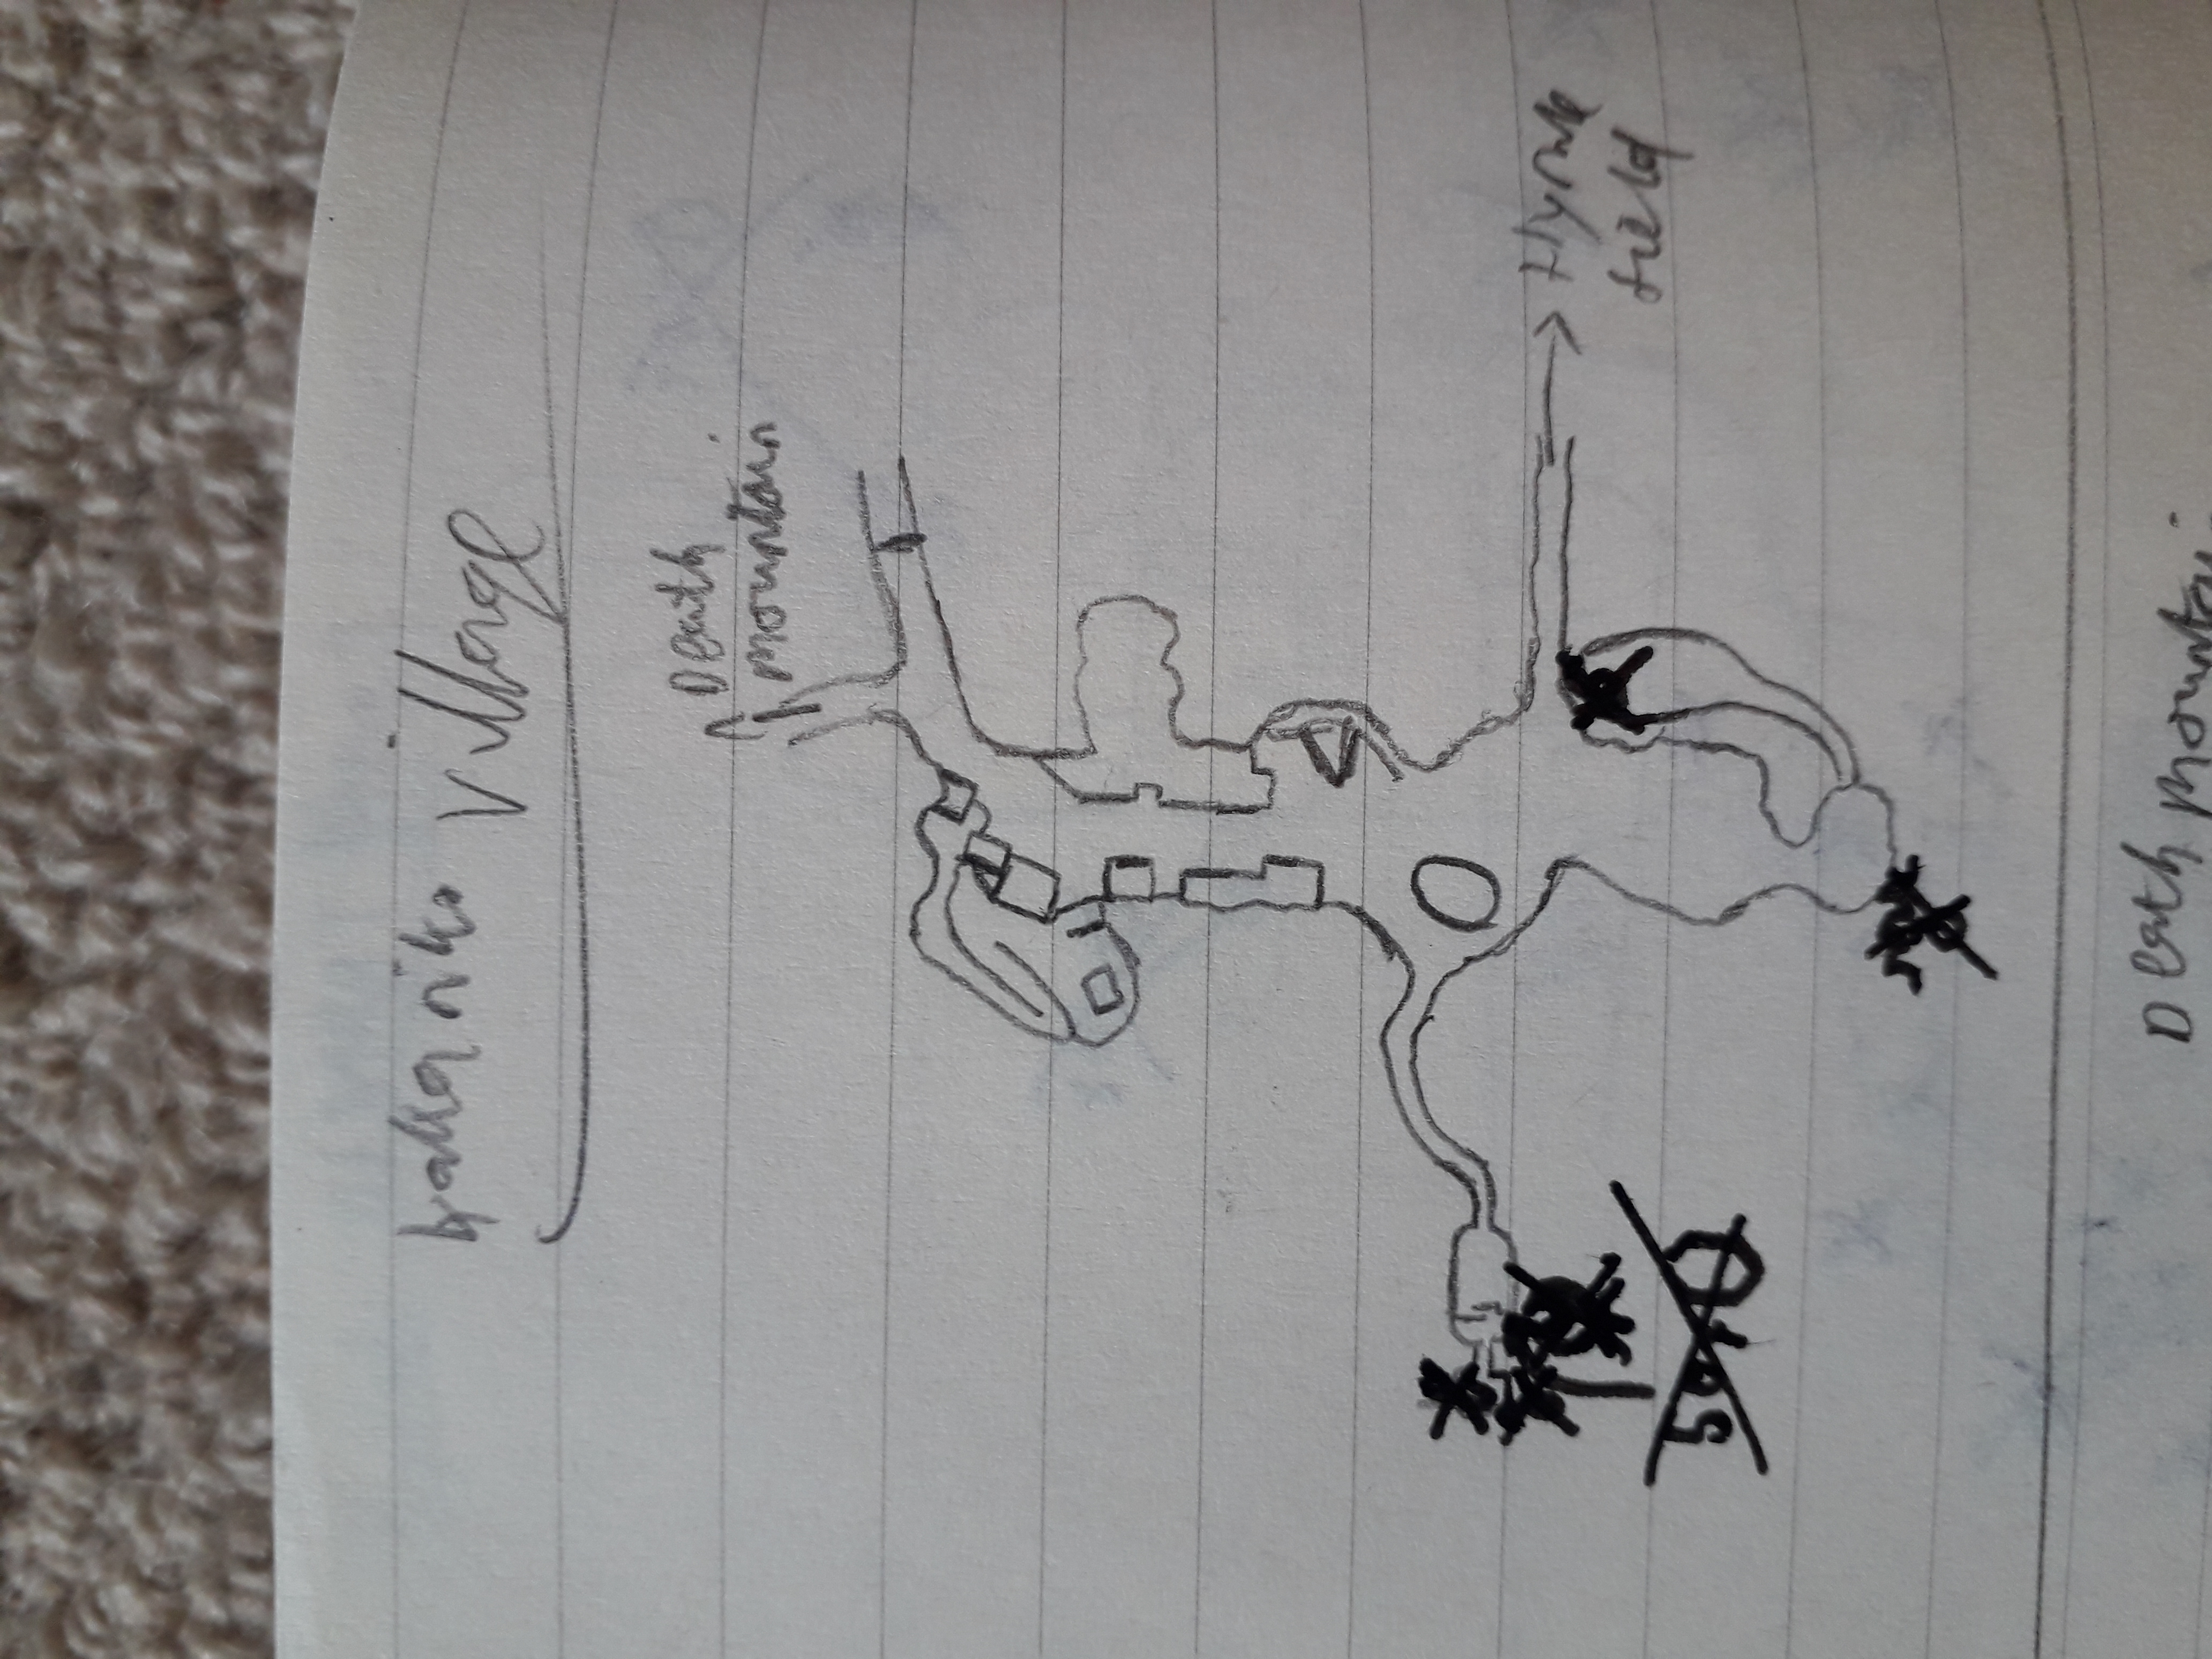 kakariko village
Death
mountain
Hyrule
field
Death mountai